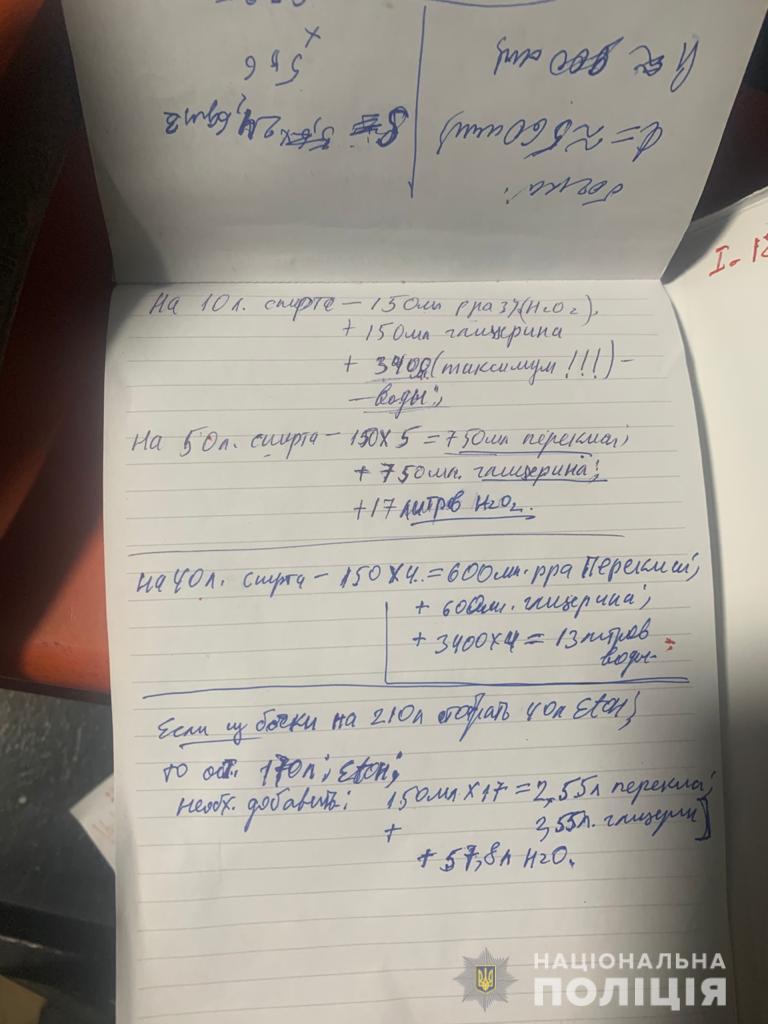 бочка:
d = ≈ 560 мм)
На 10л. спирта – 150мл рра 3%(H2O2),
+ 150мл глицерина
+ 3400(максимум!!!) –
– воды;
На 50л. спирта – 150 x 5 = 750мл перекиси;
+ 750мл. глицерина;
+ 17 литров H2O.
На 40л. спирта – 150 x 4. = 600мл. рра Перекиси;
+ 600мл. глицерина;
+ 3400x4 = 13 литров
воды.
Если из бочки на 210л отобрать 40л EtOH;
то ост. 170л; EtOH;
необх. добавить: 150мл x 17 = 2,55л перекиси;
+ 2,55л. глицерин
+ 57,8л H2O.
НАЦІОНАЛЬНА
ПОЛІЦІЯ